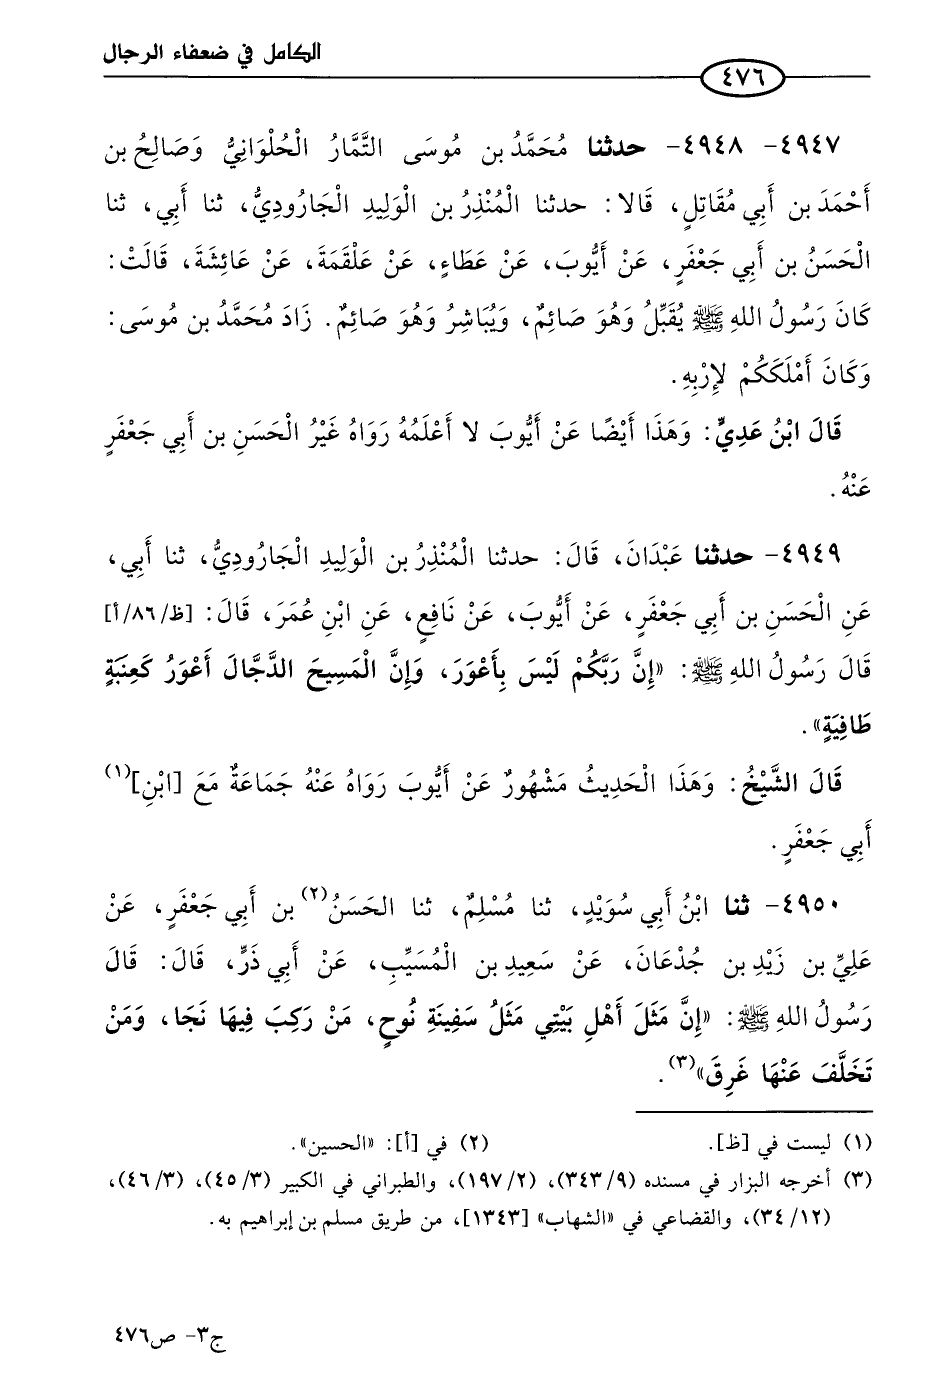 الكامل في ضعفاء الرجال
٤٧٦
٤٩٤٧- ٤٩٤٨- حدثنا مُحَمَّدُ بن مُوسَى التَّمَّارُ الْحُلْوَانِيُّ وَصَالِحُ بن
أَحْمَدَ بن أَبِي مُقَاتِلٍ، قَالا: حدثنا الْمُنْذِرُ بن الْوَلِيدِ الْجَارُودِيُّ، ثنا أَبِي، ثنا
الْحَسَنُ بن أَبِي جَعْفَرٍ، عَنْ أَيُّوبَ، عَنْ عَطَاءٍ، عَنْ عَلْقَمَةَ، عَنْ عَائِشَةَ، قَالَتْ:
كَانَ رَسُولُ اللهِ ﷺ يُقَبِّلُ وَهُوَ صَائِمٌ، وَيُبَاشِرُ وَهُوَ صَائِمٌ. زَادَ مُحَمَّدُ بن مُوسَى:
وَكَانَ أَمْلَكَكُمْ لإِرْبِهِ.
قَالَ ابْنُ عَدِيٍّ: وَهَذَا أَيْضًا عَنْ أَيُّوبَ لا أَعْلَمُهُ رَوَاهُ غَيْرُ الْحَسَنِ بن أَبِي جَعْفَرٍ
عَنْهُ.
٤٩٤٩- حدثنا عَبْدَانَ، قَالَ: حدثنا الْمُنْذِرُ بن الْوَلِيدِ الْجَارُودِيُّ، ثنا أَبِي،
عَنِ الْحَسَنِ بن أَبِي جَعْفَرٍ، عَنْ أَيُّوبَ، عَنْ نَافِعٍ، عَنِ ابْنِ عُمَرَ، قَالَ: [ظ/٨٦/أ]
قَالَ رَسُولُ اللهِ ﷺ: «إِنَّ رَبَّكُمْ لَيْسَ بِأَعْوَرَ، وَإِنَّ الْمَسِيحَ الدَّجَّالَ أَعْوَرُ كَعِنَبَةٍ
طَافِيَةٍ».
قَالَ الشَّيْخُ: وَهَذَا الْحَدِيثُ مَشْهُورٌ عَنْ أَيُّوبَ رَوَاهُ عَنْهُ جَمَاعَةٌ مَعَ [ابْنِ](١)
أَبِي جَعْفَرٍ.
٤٩٥٠- ثنا ابْنُ أَبِي سُوَيْدٍ، ثنا مُسْلِمٌ، ثنا الحَسَنُ(٢) بن أَبِي جَعْفَرٍ، عَنْ
عَلِيِّ بن زَيْدِ بن جُدْعَانَ، عَنْ سَعِيدِ بن الْمُسَيِّبِ، عَنْ أَبِي ذَرٍّ، قَالَ: قَالَ
رَسُولُ اللهِ ﷺ: «إِنَّ مَثَلَ أَهْلِ بَيْتِي مَثَلُ سَفِينَةِ نُوحٍ، مَنْ رَكِبَ فِيهَا نَجَا، وَمَنْ
تَخَلَّفَ عَنْهَا غَرِقَ»(٣).
(١) ليست في [ظ]. (٢) في [أ]: «الحسين».
(٣) أخرجه البزار في مسنده (٣٤٣/٩)، (١٩٧/٢)، والطبراني في الكبير (٤٥/٣)، (٤٦/٣)،
(٣٤/١٢)، والقضاعي في «الشهاب» [١٣٤٣]، من طريق مسلم بن إبراهيم به.
ج٣- ص٤٧٦